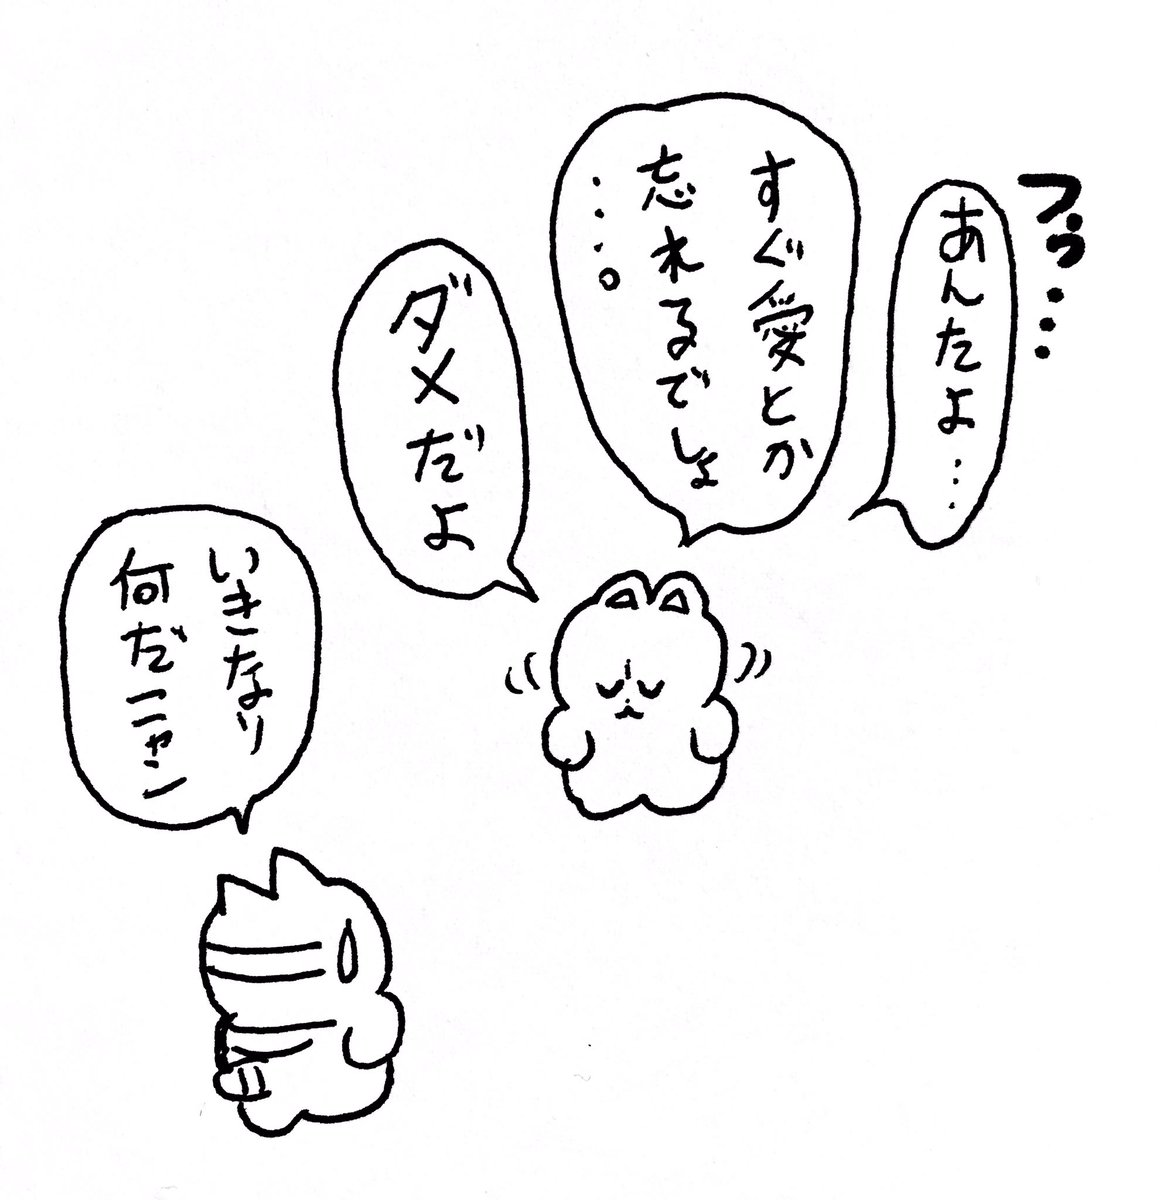 フゥ・・・
あんたよ…
すぐ愛とか
忘れるでしょ
…。
ダメだよ
いきなり
何だニャン